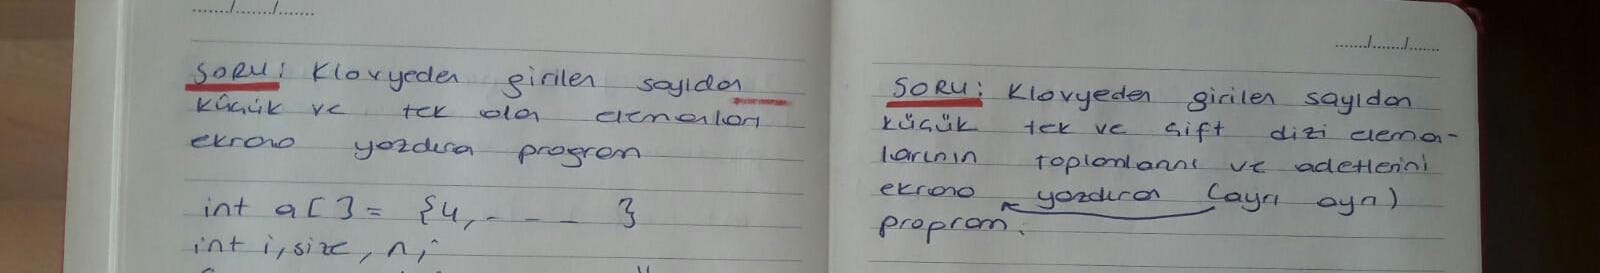 ....../....../......
SORU: Klavyeden girilen sayıdan
küçük ve tek olan elemanları
ekrana yazdıran program
int a[] = {4, - - - }
int i, size, n;
....../....../......
SORU: Klavyeden girilen sayıdan
küçük tek ve çift dizi elema-
larının toplamlarını ve adetlerini
ekrana yazdıran (ayrı ayrı)
program.